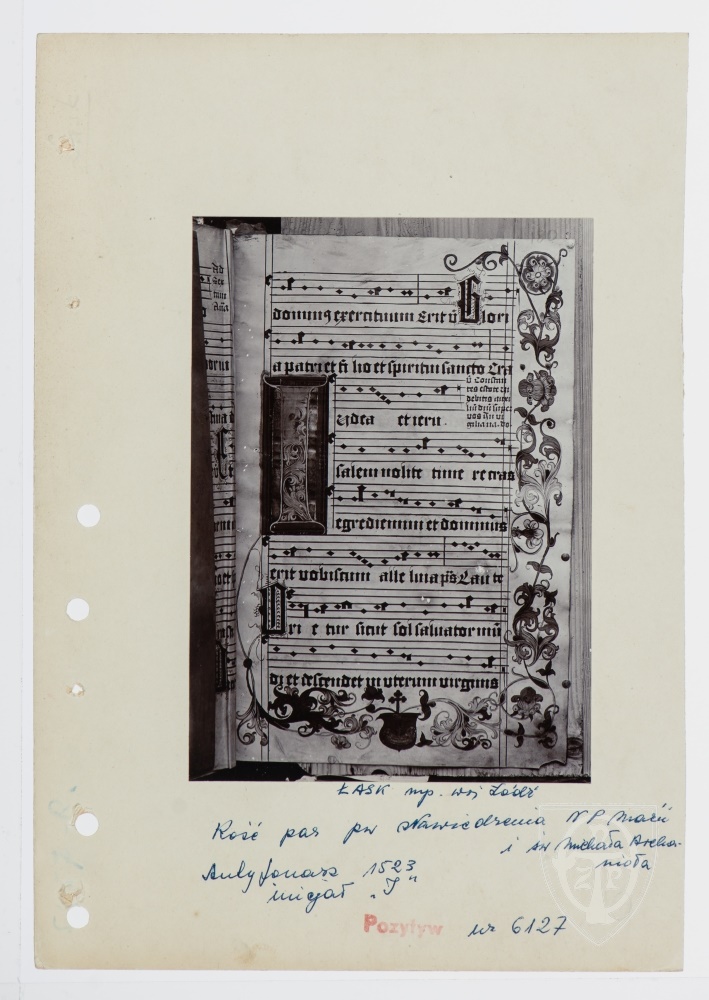 dominus exercituum Erit v̄ Glori
a patri et fi lio et spiritui sancto Era
v̄ Constan
tes estote vi
debitis auxi
iū dn̄i super
vos
vigilia na. do
udea et ieru
salem nolite time re cras
egrediemini et dominus
erit vobiscum alle luia p̄s Lau te
Ori e tur sicut sol saluator mū
di et descendet in vterum virginis
ŁASK mp. woj Łódź
Kość par pw Nawiedzenia N P Marii
i św Michała Archa-
nioła
Antyfonarz 1523
inicjał „J"
Pozytyw nr 6127